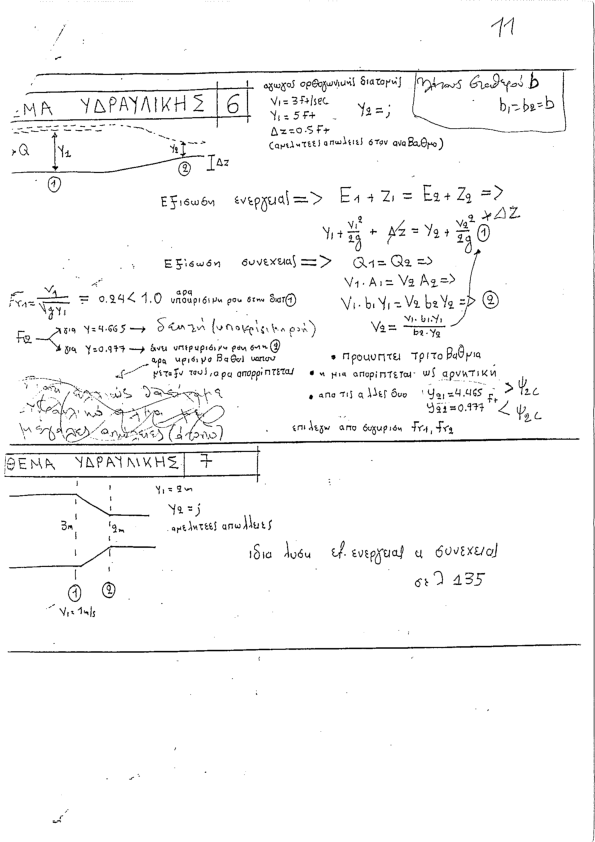 11
ΜΑ ΥΔΡΑΥΛΙΚΗΣ 6
αγωγος ορθογωνικης διατομης
V1 = 3 ft/sec
Y1 = 5 ft
Y2 = ;
Δz = 0.5 ft
(αμελητεες απωλειες στον αναβαθμο)
πλατους σταθερού b
b1 = b2 = b
Q
Y1
Y2
ΔZ
1
2
Εξισωση ενεργειας => E1 + Z1 = E2 + Z2 =>
Y1 + V1²/2g + Δz = Y2 + V2²/2g + ΔZ 1
Εξισωση συνεχειας => Q1 = Q2 =>
V1 · A1 = V2 A2 =>
V1 · b1 Y1 = V2 b2 Y2 => 2
V2 = V1 · b1 · Y1 / b2 · Y2
Fr1 = V1/√gY1 = 0.24 < 1.0 αρα υποκρισιμη ροη στην διατ 1
Fr2
για Y = 4.465 → δεκτή (υποκρίσιμη ροή)
για Y = 0.977 → εχει υπερκρισιμη ροη στη 2
αρα κρισιμο βαθος καπου
μεταξυ τους, αρα απορριπτεται
• προκυπτει τριτοβαθμια
• η μια απορριπτεται ως αρνητική
• απο τις αλλες δυο Y21 = 4.465 ft > Y2c
Y22 = 0.977 < Y2c
επιλεγω απο συγκριση Fr1, Fr2
μεγαλες απωλειες (άτοπο)
ΘΕΜΑ ΥΔΡΑΥΛΙΚΗΣ 7
Y1 = 2m
Y2 = ;
αμελητεες απωλειες
3m
2m
1
2
V1 = 1m/s
ιδια λυση εξ. ενεργειας κ συνεχειας
σελ 135